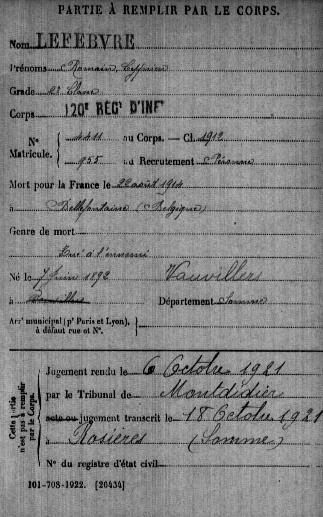 PARTIE À REMPLIR PAR LE CORPS.
Nom LEFEBVRE
Prénoms Romain
Grade 2e Classe
Corps 120e REGt D'INFie
No Matricule. 4411 au Corps. — Cl. 1912
955 au Recrutement Péronne
Mort pour la France le 22 août 1914
à Bellefontaine (Belgique)
Genre de mort
Tué à l'ennemi
Né le 7 Juin 1892
à Vauvillers Département Somme
Arrt municipal (pr Paris et Lyon), à défaut rue et No.
Cette partie n'est pas à remplir par le Corps.
Jugement rendu le 6 Octobre 1921
par le Tribunal de Montdidier
acte ou jugement transcrit le 18 Octobre 1921
à Rosières (Somme)
No du registre d'état civil
101-708-1922. [26434]